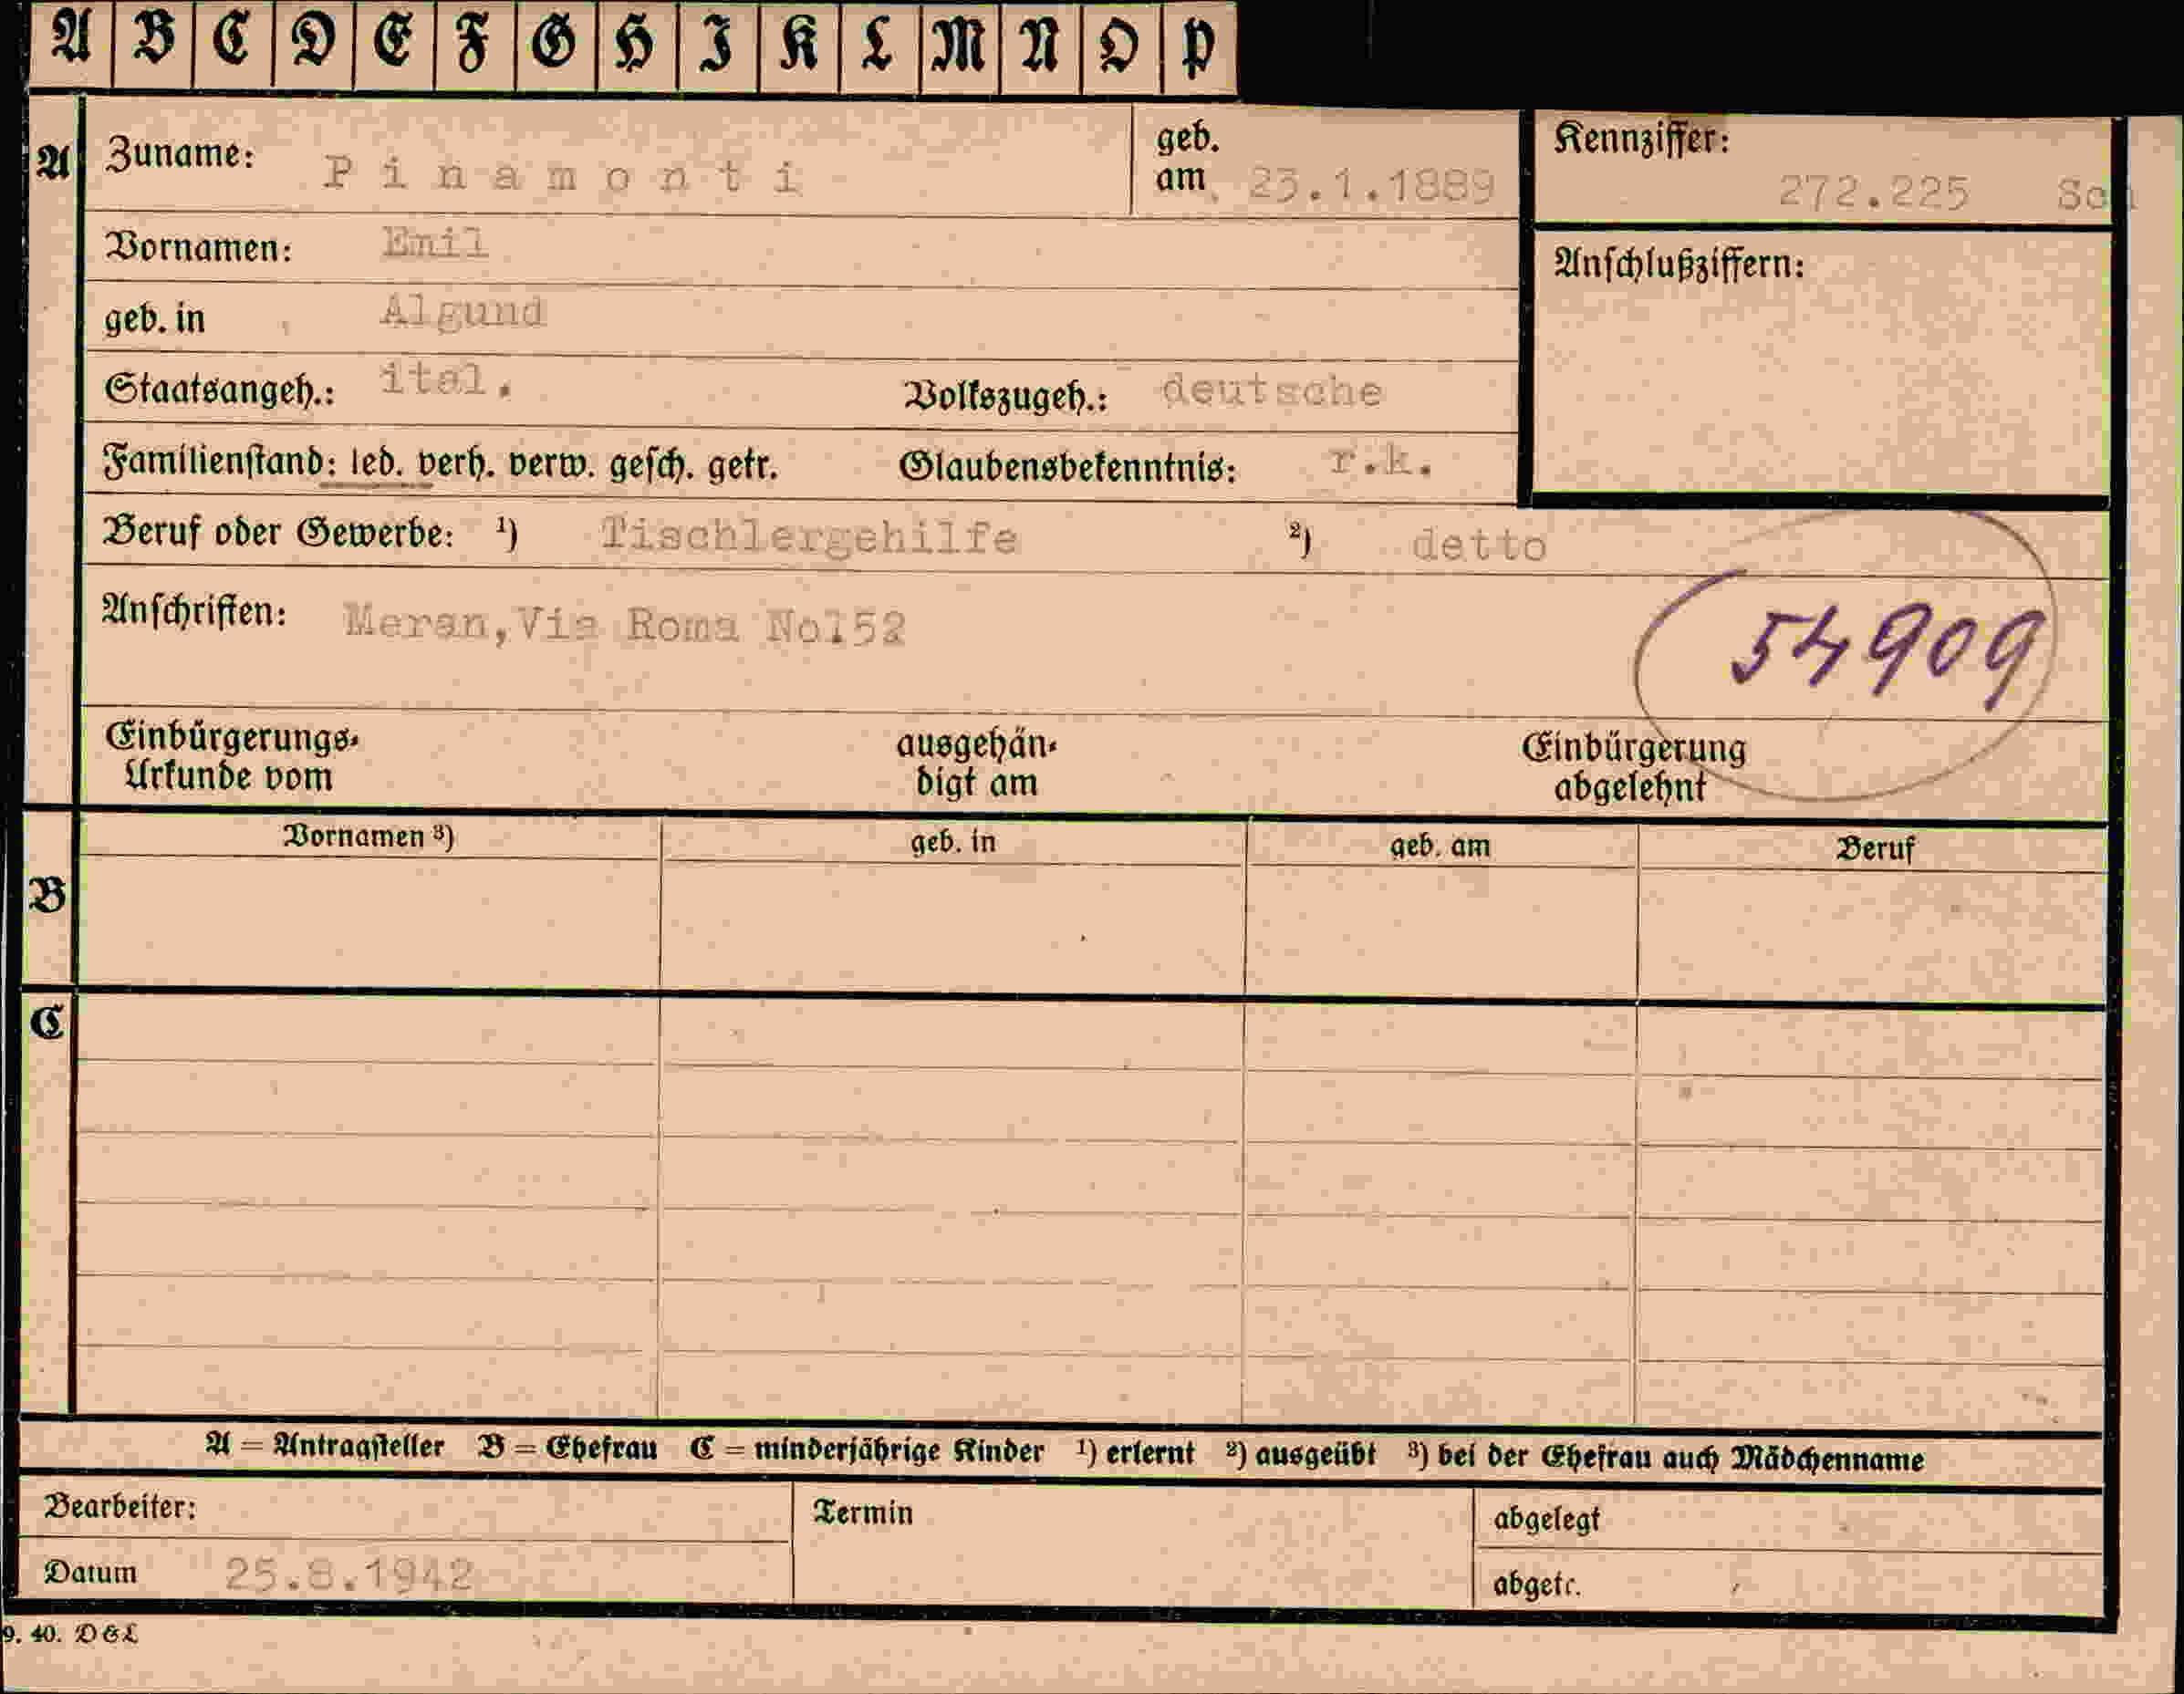 A B C D E F G H I K L M N O P
A Zuname: Pinamonti geb. am 23.1.1889 Kennziffer: 272.225 Sch
Vornamen: Emil Anschlußziffern:
geb. in Algund
Staatsangeh.: ital. Volkszugeh.: deutsche
Familienstand: led. verh. verw. gesch. getr. Glaubensbekenntnis: r.k.
Beruf oder Gewerbe: ¹) Tischlergehilfe ²) detto
Anschriften: Meran,Via Roma No152
54909
Einbürgerungs- ausgehän- Einbürgerung
Urkunde vom digt am abgelehnt
Vornamen ³) geb. in geb. am Beruf
B
C
A = Antragsteller B = Ehefrau C = minderjährige Kinder ¹) erlernt ²) ausgeübt ³) bei der Ehefrau auch Mädchenname
Bearbeiter: Termin abgelegt
Datum 25.8.1942 abgetr.
9. 40. DGL